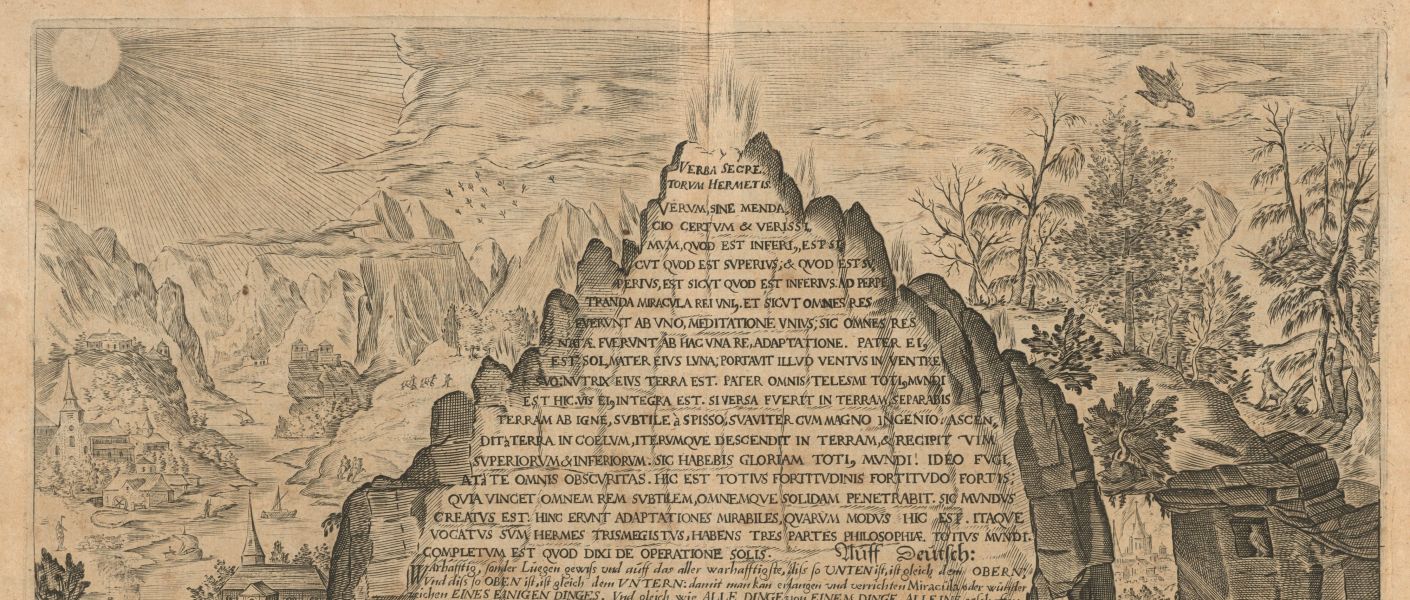 VERBA SECRE
TORVM HERMETIS.
VERVM, SINE MENDA,
CIO CERTVM & VERISSI,
MVM, QVOD EST INFERI9, EST SI,
CVT QVOD EST SVPERIVS; & QVOD EST SV,
PERIVS, EST SICVT QVOD EST INFERIVS. AD PERPE
TRANDA MIRACVLA REI VNI9. ET SICVT OMNES RES
FVERVNT AB VNO, MEDITATIONE VNIVS; SIC OMNES RES
NATÆ FVERVNT AB HAC VNA RE, ADAPTATIONE. PATER EI9
EST SOL, MATER EIVS LVNA; PORTAVIT ILLVD VENTVS IN VENTRE
SVO; NVTRIX EIVS TERRA EST. PATER OMNIS TELESMI TOTI9 MVNDI
EST HIC. VIS EI9 INTEGRA EST. SI VERSA FVERIT IN TERRAM, SEPARABIS
TERRAM AB IGNE, SVBTILE à SPISSO, SVAVITER CVM MAGNO INGENIO. ASCEN,
DIT à TERRA IN COELVM, ITERVMQVE DESCENDIT IN TERRAM, & RECIPIT VIM
SVPERIORVM & INFERIORVM. SIC HABEBIS GLORIAM TOTI9 MVNDI. IDEO FVGI,
AT à TE OMNIS OBSCVRITAS. HIC EST TOTIVS FORTITVDINIS FORTITVDO FORTIS,
QVIA VINCET OMNEM REM SVBTILEM, OMNEMQVE SOLIDAM PENETRABIT. SIC MVNDVS
CREATVS EST. HINC ERVNT ADAPTATIONES MIRABILES, QVARVM MODVS HIC EST. ITAQVE
VOCATVS SVM HERMES TRISMEGISTVS, HABENS TRES PARTES PHILOSOPHIÆ TOTIVS MVNDI.
COMPLETVM EST QVOD DIXI DE OPERATIONE SOLIS. Auff Deutsch:
WArhafftig, sonder Luegen gewiss und auff das aller warhafftigste, diss so UNTEN ist, ist gleich dem OBERN:
Und diss so OBEN ist, ist gleich dem UNTERN: damit man kan erlangen und verrichten Miracula oder wunder
zeichen EINES EINIGEN DINGES. Und gleich wie ALLE DINGE von EINEM DINGE ALLEINE geschaffen